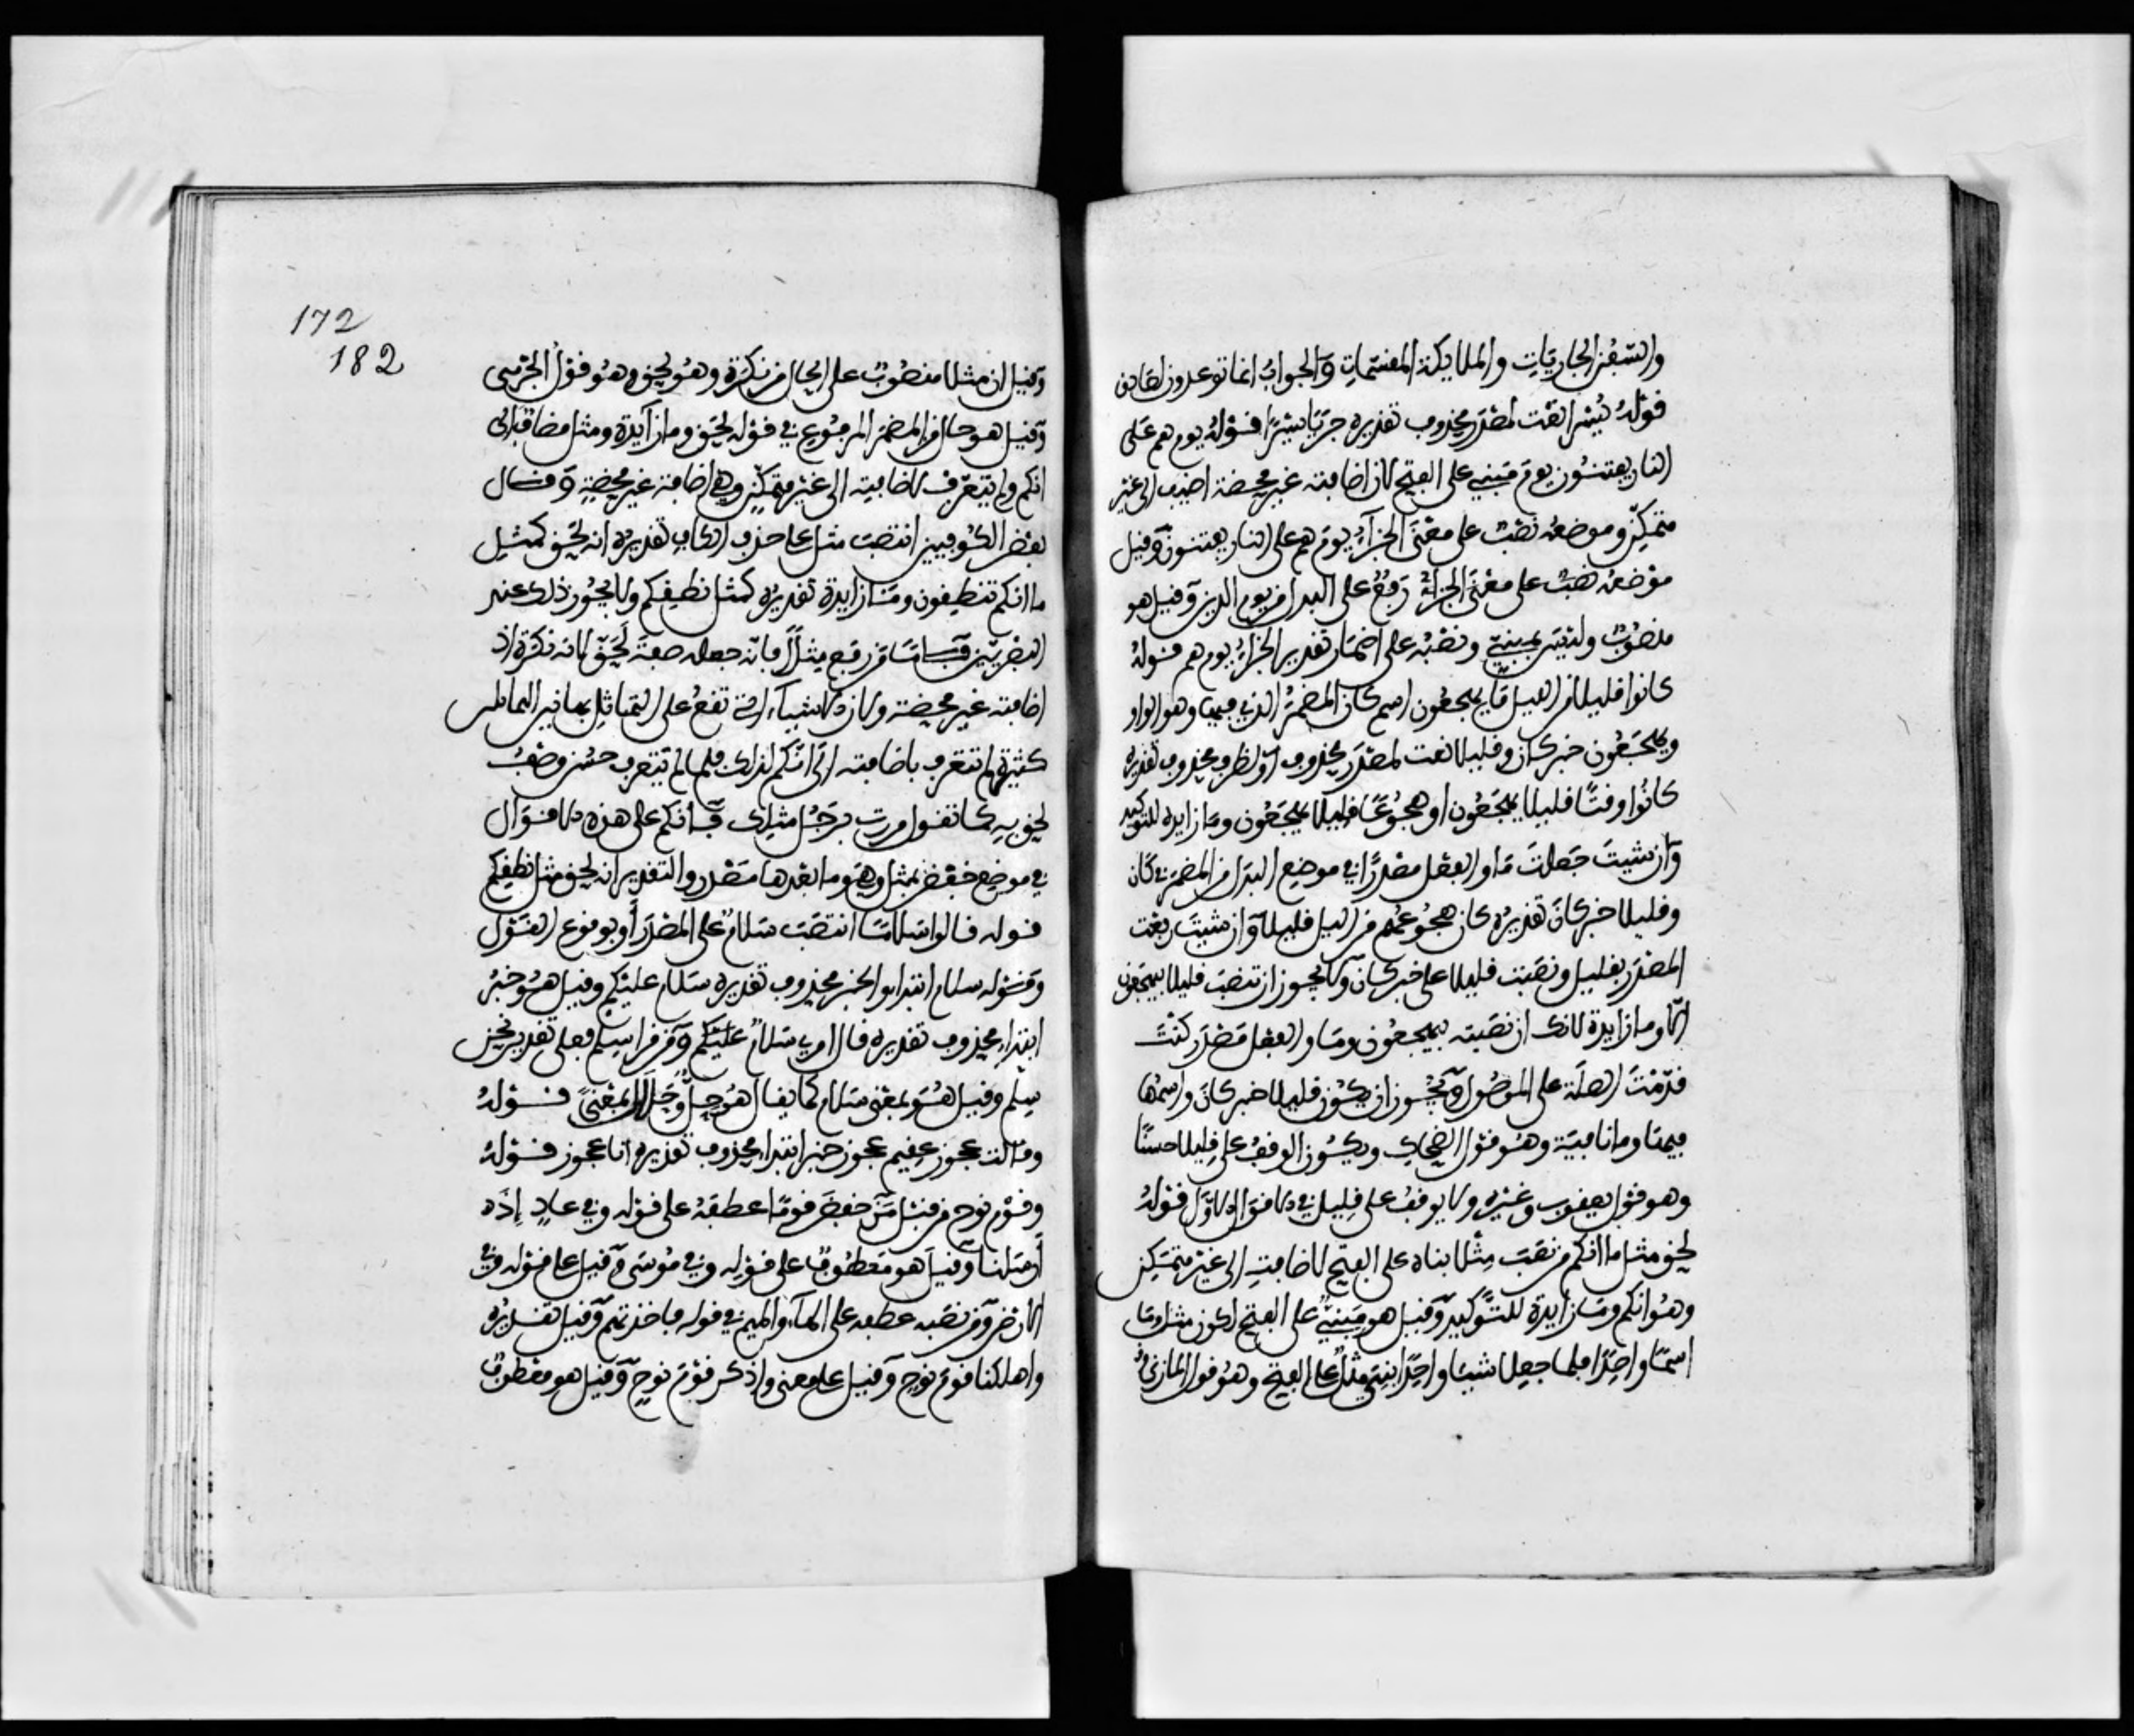 والسفن الجاريات والملايكة المقسمات والجواب انما توعدون لصادق
قوله يسرا نعت لمصدر محذوف تقديره جريا يسرا قوله يوم هم على
النار يفتنون يوم مبني على الفتح لان اضافته غير محضة اضيف الى غير
متمكن وموضعه نصب على معنى الجزاء يوم هم على النار يفتنون وقيل
موضعه نصب على معنى الجزاء رفع على البدل من يوم الدين وقيل هو
منصوب وليس بمبني ونصبه على اضمار تقدير الجزاء يوم هم قوله
كانوا قليلا من الليل ما يهجعون اسم كان المضمر الذي فيها وهو الواو
ويهجعون خبر كان وقليلا نعت لمصدر محذوف او لظرف محذوف تقديره
كانوا وقتا قليلا يهجعون او هجوعا قليلا يهجعون وما زايدة للتوكيد
وان شيت جعلت ما والفعل مصدرا في موضع البدل من المضمر في كان
وقليلا خبر كان تقديره كان هجوعهم من الليل قليلا وان شيت رفعت
المصدر بقليل ونصبت قليلا على خبر كان ولا يجوز ان تنصب قليلا بيهجعون
الا وما زايدة لانك ان نصبته بيهجعون وما والفعل مصدر كنت
قدمت الصلة على الموصول ويجوز ان يكون قليلا خبر كان واسمها
فيها وما نافية وهو قول الضحاك ويكون الوقف على قليلا حسنا
وهو قول يعقوب وغيره ولا يوقف على قليل في الاقوال الاول قوله
لحق مثل ما انكم من نصب مثلا بناه على الفتح لاضافته الى غير متمكن
وهو انكم وما زايدة للتوكيد وقيل هو مبني على الفتح لكون مثل وما
اسما واحدا فلما جعلا شيئا واحدا بني مثل على الفتح وهو قول المازني
172
182
وقيل ان مثلا منصوب على الحال من نكرة وهو لحق وهو قول الجرمي
وقيل هو حال من المضمر المرفوع في قوله لحق وما زايدة ومثل مضاف الى
انكم ولم يتعرف لاضافته الى غير متمكن وهي اضافة غير محضة وقال
بعض الكوفيين انتصب مثل على حذف الكاف تقديره انه لحق كمثل
ما انكم تنطقون وما زايدة تقديره كمثل نطقكم ولا يجوز ذلك عند
البصريين فاما من رفع مثلا فانه جعله صفة لحق لانه نكرة اذ
اضافته غير محضة ولان الاشياء التي تقع على التماثل بها بين المتماثلين
كثيرة لم تتعرف باضافته الى انكم لذلك فلما لم تتعرف حسن وصف
لحق به كما تقول مررت برجل مثلك فـانكم على هذه الاقوال
في موضع خفض بمثل وهي وما بعدها مصدر والتقدير انه لحق مثل نطقكم
قوله قالوا سلاما انتصب سلام على المصدر او بوقوع القول
وقوله سلام ابتداء والخبر محذوف تقديره سلام عليكم وقيل هو خبر
ابتداء محذوف تقديره قال امري سلام عليكم ومن قرا سلم فعلى تقدير نحن
سلم وقيل هو بمعنى سلام كما يقال هو حل وحلال بمعنى قوله
وقالت عجوز عقيم عجوز خبر ابتداء محذوف تقديره انا عجوز قوله
وقوم نوح من قبل من خفض قوما عطفه على قوله وفي عاد إذ
أرسلنا وقيل هو معطوف على قوله وفي موسى وقيل على قوله وفي
الارض ومن نصبه عطفه على الهاء والميم في قوله فاخذتهم وقيل تقديره
واهلكنا قوم نوح وقيل على معنى واذكر قوم نوح وقيل هو معطوف